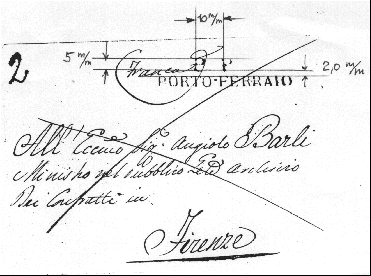 10 m/m
5 m/m
2
Franca
2,0 m/m
PORTO-FERRAIO
All' Eccmo Sigr. Angiolo Barli
Ministro nel pubblico
Dei in
Firenze